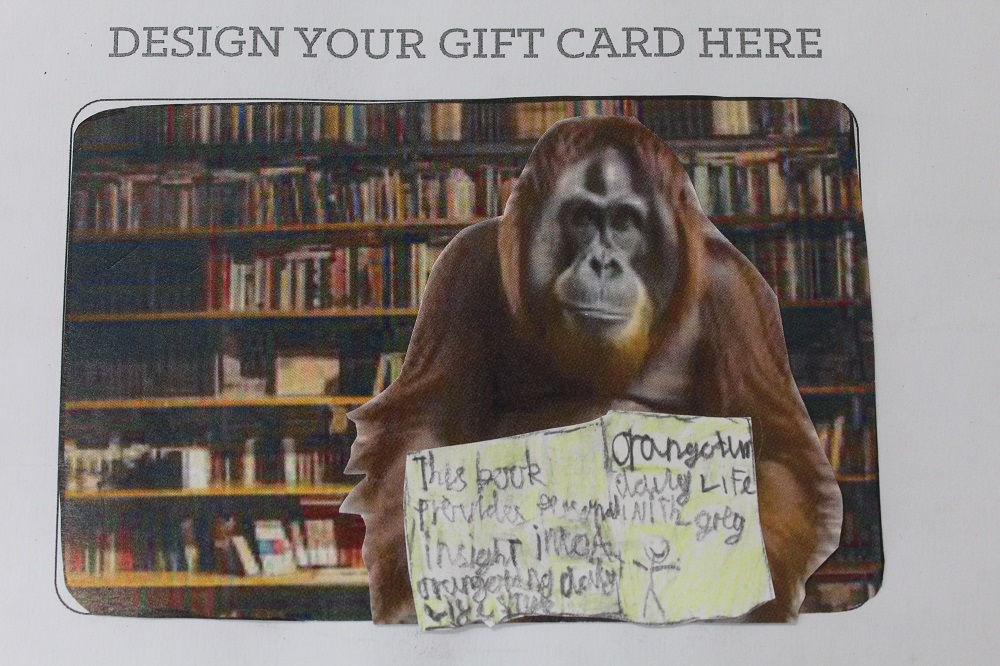 DESIGN YOUR GIFT CARD HERE
This book
provides
insight into a
daily
orangotun
daily LIFE
WITH greg